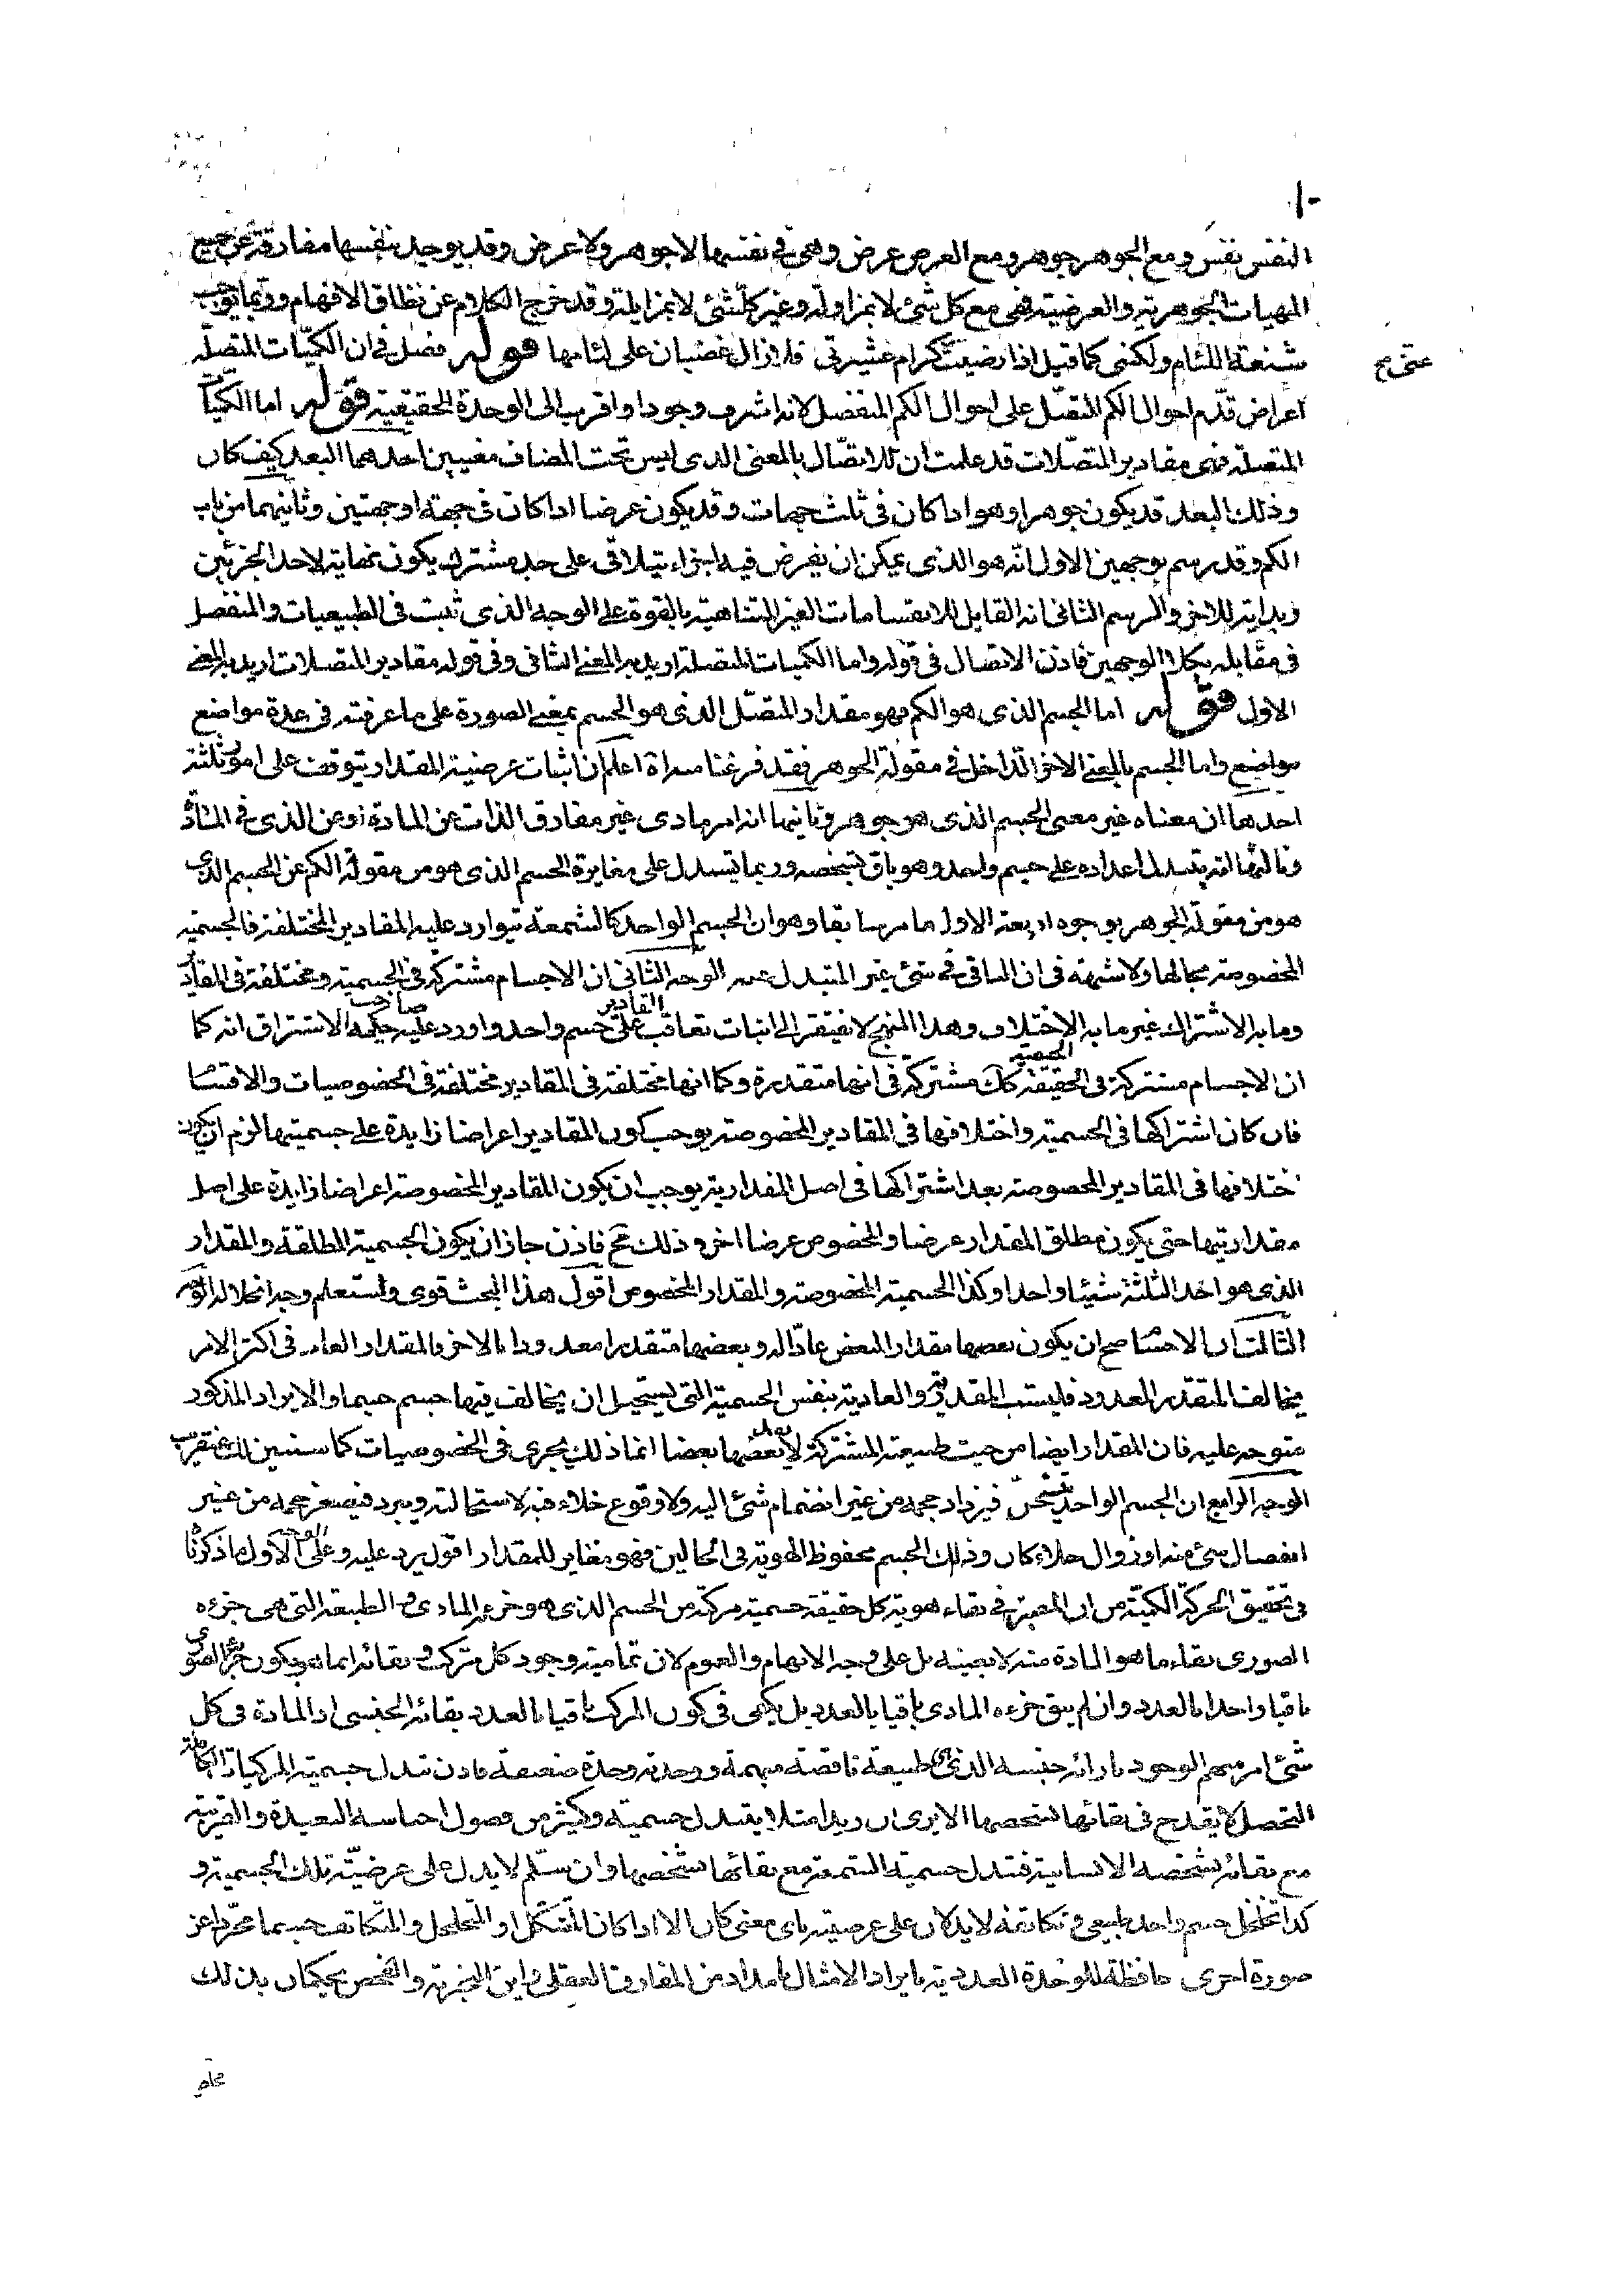 ١٠
النفس نفس ومع الجوهر جوهر ومع العرض عرض وهى فى نفسها لا جوهر ولا عرض وقد يوجد بنفسها مفارقة عن جميع
المهيات الجوهرية والعرضية فهى مع كل شئ لا بمزاولة وغير كل شئ لا بمزايلة وقد خرج الكلام عن نطاق الافهام وربما يوجب
شنعة اللئام ولكنى كما قيل اذا رضيت كرام عشيرتى فلا زال غضبان على لئامها قوله فصل فى ان الكميات المتصلة
عنى ح
اعراض قدم احوال الكم المتصل على احوال الكم المنفصل لانه اشرف وجودا واقرب الى الوحدة الحقيقية قوله اما الكميات
المتصلة فهى مقادير المتصلات قد علمت ان للاتصال بالمعنى الذى ليس تحت المضاف معنيين احدهما البعد كيف كان
وذلك البعد قد يكون جوهرا وهو اذا كان فى ثلث جهات وقد يكون عرضا اذا كان فى جهة او جهتين وثانيهما من باب
الكم وقد رسم بوجهين الاول انه هو الذى يمكن ان يفرض فيه اجزاء يتلاقى على حد مشترك يكون نهاية لاحد الجزئين
وبداية للاخر والرسم الثانى انه القابل للانقسامات الغير المتناهية بالقوة على الوجه الذى ثبت فى الطبيعيات والمنفصل
فى مقابله بكلا الوجهين فاذن الاتصال فى قوله واما الكميات المتصلة اريد به المعنى الثانى وفى قوله مقادير المتصلات اريد به المعنى
الاول قوله اما الجسم الذى هو الكم فهو مقدار المتصل الذى هو الجسم بمعنى الصورة على ما عرفته فى عدة مواضع
مواضع واما الجسم بالمعنى الاخر الداخل فى مقولة الجوهر فقد فرغنا منه اه اعلم ان اثبات عرضية المقدار يتوقف على امور ثلثة
احدها ان معناه غير معنى الجسم الذى هو جوهر وثانيها انه امر مادى غير مفارق الذات عن المادة او عن الذى فى المادة
وثالثها انه يتبدل اعداده على جسم واحد وهو باق بتشخصه وربما يستدل على مغايرة الجسم الذى هو من مقولة الكم عن الجسم الذى
هو من مقولة الجوهر بوجوه اربعة الاول ما مر سابقا وهو ان الجسم الواحد كالشمعة يتوارد عليه المقادير المختلفة فالجسمية
المخصوصة بحالها ولا شبهة فى ان الباقى فى شئ غير المتبدل عنه الوجه الثانى ان الاجسام مشتركة فى الجسمية ومختلفة فى المقادير
وما به الاشتراك غير ما به الاختلاف وهذا المنهج لا يفتقر الى اثبات تعاقب المقادير على جسم واحد واورد عليه صاحب حكمة الاشراق انه كما
ان الاجسام مشتركة فى الحقيقة الجسمية كك مشتركة فى انها متقدرة وكما انها مختلفة فى المقادير مختلفة فى الخصوصيات والاقتسا
فان كان اشتراكها فى الجسمية واختلافها فى المقادير المخصوصة يوجب كون المقادير اعراضا زايدة على جسميتها لزم ان يكون
اختلافها فى المقادير المخصوصة بعد اشتراكها فى اصل المقدارية يوجب ان يكون المقادير المخصوصة اعراضا زايدة على اصل
مقداريتها حتى يكون مطلق المقدار عرضا والمخصوص عرضا اخر وذلك مح فاذن جاز ان يكون الجسمية المطلقة والمقدار
الذى هو احد الثلثة شيئا واحدا وكذا الجسمية المخصوصة والمقدار المخصوص اقول هذا البحث قوى وستعلم وجه انحلاله الوجه
الثالث ان الاجسام صح ان يكون بعضها مقدار البعض عادا له وبعضها متقدرا معدودا بالاخر والمقدار العاد فى اكثر الامر
يخالف المتقدر المعدود فليست المقدرية والعادية بنفس الجسمية التى يستحيل ان يخالف فيها جسم جسما والايراد المذكور
متوجه عليه فان المقدار ايضا من حيث طبيعته المشتركة لا يعد بعضها بعضا انما ذلك يجرى فى الخصوصيات كما سنبين لك عنقريب
الوجه الرابع ان الجسم الواحد يتسخن فيزداد حجمه من غير انضمام شئ اليه ولا وقوع خلاء فيه لاستحالته ويبرد فيصغر حجمه من غير
انفصال شئ منه او زوال خلاء كان وذلك الجسم محفوظ الهوية فى الحالين فهو مغاير للمقدار اقول يرد عليه وعلى الوجه الاول ما ذكرنا
فى تحقيق الحركة الكمية من ان المعتبر فى بقاء هوية كل حقيقة جسمية مركبة من الجسم الذى هو جزءه المادى و الطبيعة التى هى جزءه
الصورى بقاء ما هو المادة منه لا بعينه بل على وجه الابهام والعموم لان تمامية وجود كل مركب وبقائه انما هو بكون جزئه الصورى
باقيا واحدا بالعدد وان لم يبق جزءه المادى باقيا بالعدد بل يكفى فى كون المركب باقيا بالعدد بقائه الجنسى اذ المادة فى كل
شئ امر مبهم الوجود بازائه جنسه الذى هى طبيعة ناقصة مبهمة ووحدته وحدة ضعيفة فاذن تبدل جسمية المركبات الكاملة
التحصل لا يقدح فى بقائها بتشخصها الا يرى ان زيدا مثلا يتبدل جسميته وكثير من فصول اجناسه البعيدة والقريبة
مع بقائه بشخصه الانسانية فتبدل جسمية الشمعة مع بقائها بشخصها وان سلم لا يدل على عرضية تلك الجسمية و
كذا تخلخل جسم واحد طبيعى وتكاثفه لا يدلان على عرضيته باى معنى كان الا اذا كان المتشكل او المتخلخل والمتكاثف جسما مجردا عن
صورة اخرى حافظة للوحدة العددية بايراد الامثال بامداد من المفارق العقلى واين التجربة والفحص يحكمان بذلك